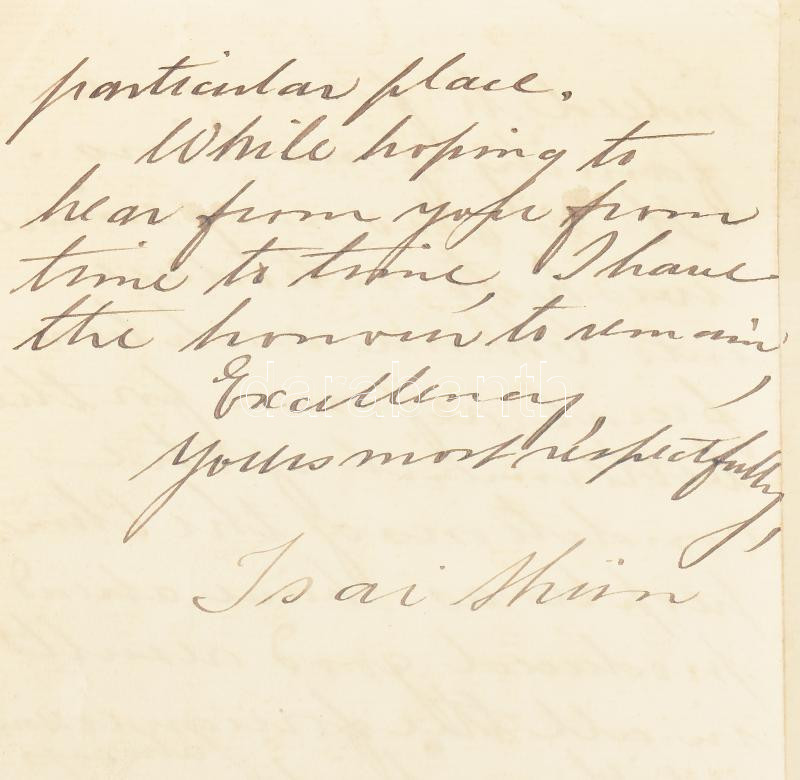 particular place.
While hoping to
hear from you from
time to time, I have
the honour to remain,
Excellency,
darabanth
Yours most respectfully,
Tsai Shün